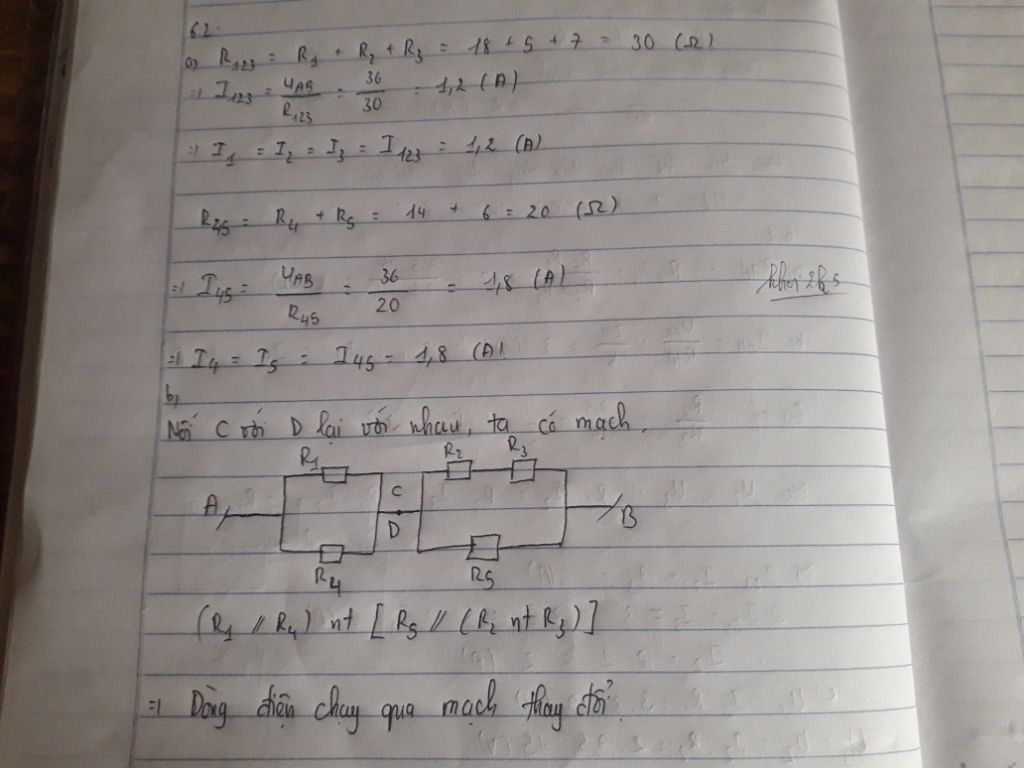 62.
a) R₁₂₃ = R₁ + R₂ + R₃ = 18 + 5 + 7 = 30 (Ω)
=> I₁₂₃ = U_AB / R₁₂₃ = 36 / 30 = 1,2 (A)
=> I₁ = I₂ = I₃ = I₁₂₃ = 1,2 (A)
R₄₅ = R₄ + R₅ = 14 + 6 = 20 (Ω)
=> I₄₅ = U_AB / R₄₅ = 36 / 20 = 1,8 (A)
=> I₄ = I₅ = I₄₅ = 1,8 (A)
b,
Nối C với D lại với nhau, ta có mạch.
R₁ R₂ R₃
A C B
D
R₄ R₅
(R₁ // R₄) nt [R₅ // (R₂ nt R₃)]
=> Dòng điện chạy qua mạch thay đổi.